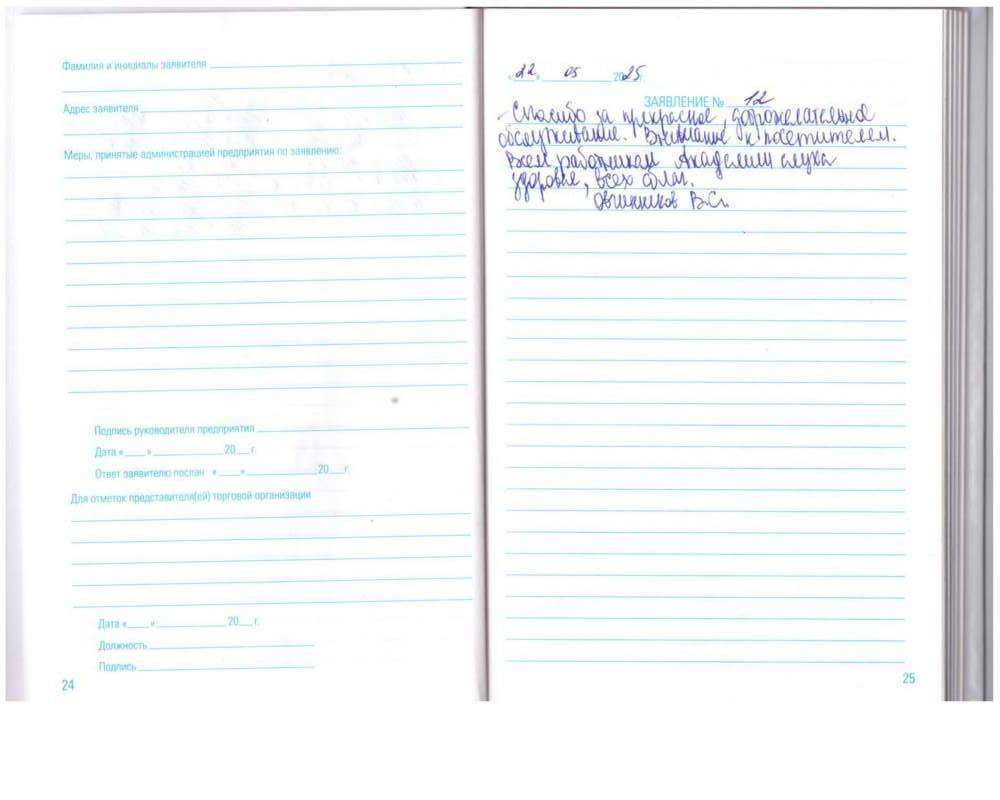 Фамилия и инициалы заявителя
Адрес заявителя
Меры, принятые администрацией предприятия по заявлению:
Подпись руководителя предприятия
Дата «___» ___ 20__ г.
Ответ заявителю послан «___» ___ 20__ г.
Для отметок представителя(ей) торговой организации
Дата «___» ___ 20__ г.
Должность
Подпись
24
«22» 05 2025
ЗАЯВЛЕНИЕ № 12
Спасибо за прекрасное, доброжелательное
обслуживание. Внимание к посетителем.
Всем работникам Академии слуха
здоровье, всех благ.
Овчинников В.Сг.
25